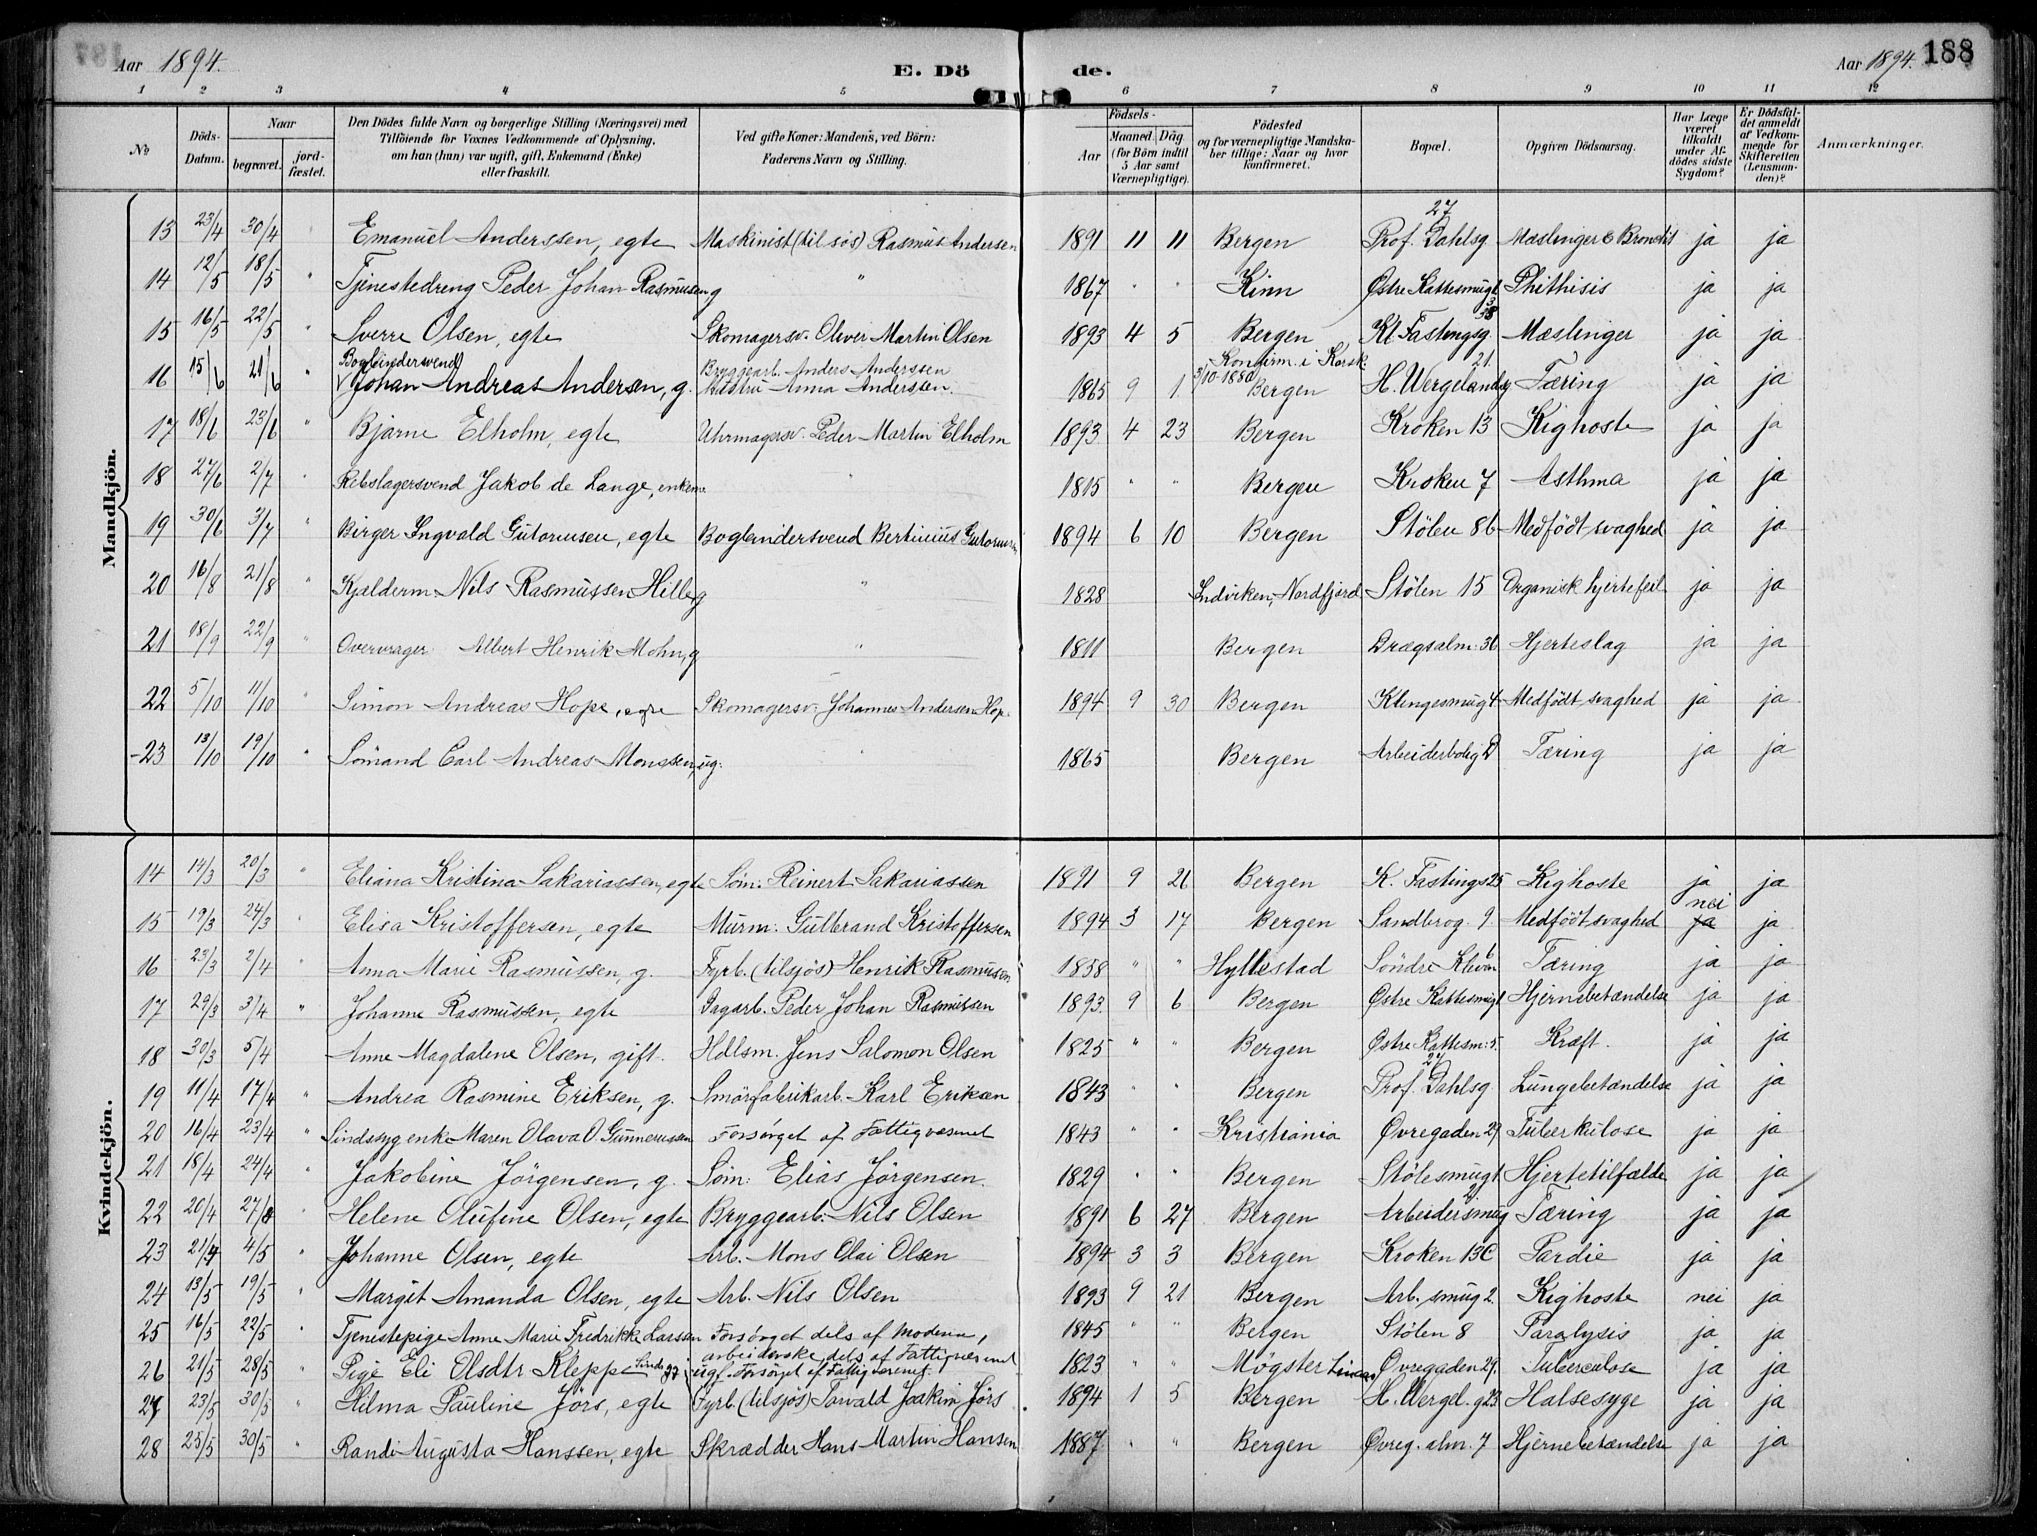 Aar 1894. E. Dö de. Aar 1894. 188
1 2 3 4 5 6 7 8 9 10 11 12
No Döds-Datum. Naar begravet. jord-fæstet. Den Dödes fulde Navn og borgerlige Stilling (Næringsvei) med Tilföiende for Voxnes Vedkommende af Oplysning, om han (hun) var ugift, gift, Enkemand (Enke) eller fraskilt. Ved gifte Koner: Mandens, ved Börn: Faderens Navn og Stilling. Födsels- Aar Maaned Dag (for Börn indtil 5 Aar samt Værnepligtige). Födested og for værnepligtige Mandskaber tillige: Naar og hvor konfirmeret. Bopæl. Opgiven Dödsaarsag. Har Læge været tilkaldt under Afdödes sidste Sygdom? Er Dödsfaldet anmeldt af Vedkommende for Skifteretten (Lensmanden)? Anmærkninger.
Mandkjön.
13 23/4 30/4 Emanuel Anderssen, egte Maskinist (til søs) Rasmus Andersen 1891 11 11 Bergen Prof. Dahlsg 27 Mæslinger & Bronchit ja ja
14 12/5 18/5 " Tjenestedreng Peder Johan Rasmusen g " 1867 " " Kinn Østre Kattesmug 1 Phithisis ja ja
15 16/5 22/5 " Sverre Olsen, egte Skomagersv. Oliver Martin Olsen 1893 4 5 Bergen Kl Fastingsg. 38 Mæslinger ja ja
16 15/6 21/6 Bogbindersvend Johan Andreas Andersen, g. Bryggearb. Anders Anderssen Hustru Anna Anderssen. 1865 9 1 Konfirm. i Korsk. 3/10-1880 Bergen H. Wergelandsg 21. Tæring ja ja
17 18/6 23/6 " Bjarne Elholm, egte Uhrmagersv. Peder Martin Elholm 1893 4 23 Bergen Kroken 13 Kighoste ja ja
18 27/6 2/7 " Rebslagersvend Jakob de Lange, enkem. " 1815 " " Bergen Kroken 7 Asthma ja ja
19 30/6 3/7 " Birger Ingvald Gutormsen, egte Bogbindersvend Bertinius Gutormsen 1894 6 10 Bergen Stölen 8b Medfödt svaghed ja ja
20 16/8 21/8 " Kjælderm. Nils Rasmussen Hille g " 1828 Indviken, Nordfjord Stölen 15 Organisk hjertefeil ja ja
21 18/9 22/9 " Overvrager Albert Henrik Mohn, g " 1811 Bergen Drægsalm. 36 Hjerteslag ja ja
22 5/10 11/10 " Simon Andreas Hope, egte Skomagersv. Johannes Andersen Hop. 1894 9 30 Bergen Klingesmug 4 Medfödt svaghed ja ja
-23 13/10 19/10 " Sømand Carl Andreas Monssen, ug. " 1865 Bergen Arbeiderbolig D Tæring ja ja
Kvindekjön.
14 14/3 20/3 " Eliana Kristina Sakariassen, egte Søm. Reinert Sakariassen 1891 9 26 Bergen K. Fastings 25 Kighoste ja ja
15 19/3 24/3 " Elisa Kristoffersen, egte Murm. Gulbrand Kristoffersen 1894 3 17 Bergen Sandbrog. 9. Medfödt svaghed nei ja ja
16 23/3 2/4 " Anna Marie Rasmussen, g. Fyrb. (tilsjös) Henrik Rasmussen 1858 " " Hyllestad Söndre Kleven 6 Tæring ja ja
17 29/3 3/4 " Johanne Rasmussen, egte Sagarb. Peder Johan Rasmussen 1893 9 6 Bergen Østre Kattesmug 1 Hjernebetændelse ja ja
18 30/3 5/4 Anne Magdalene Olsen, gift. Hdlsm. Jens Salomon Olsen 1825 " " Bergen Østre Kattesm: 5. Kræft. ja ja
19 11/4 17/4 " Andrea Rasmine Eriksen, g. Smörfabrikarb. Karl Eriksen 1843 " " Bergen Prof. Dahlsg Lungebetændelse ja ja
20 16/4 23/4 " Sindssyg enke Maren Olava O. Gunnerussen Forsörget af Fattigvæsenet 1843 " " Kristiania Øvregaden 29 Tuberkulose ja ja
21 18/4 24/4 " Jakobine Jörgensen, g. Søm: Elias Jörgensen. 1829 " " Bergen Stölesmug 1 Hjertetilfælde ja ja
22 20/4 27/4 " Helene Olufine Olsen, egte Bryggearb. Nils Olsen 1891 6 27 Bergen Arbeidersmug 2 Tæring ja ja
23 21/4 4/5 " Johanne Olsen, egte Arb. Mons Olai Olsen 1894 3 3 Bergen Kroken 13C ja ja
24 13/5 19/5 " Margit Amanda Olsen, egte Arb. Nils Olsen 1893 9 21 Bergen Arb. smug 2. Kighoste nei ja
25 16/5 22/5 " Tjenestepige Anne Marie Fredrikke Larsen Forsörget dels af Moderen, arbeiderske dels af Fattigvæsenet 1845 " " Bergen Stölen 8 Paralysis ja ja
26 21/5 28/5 " Pige Eli Olsdtr Kleppe Sindssyg ugf. Forsörget af Fattigvæsenet 1823 " " Mögster Øvregaden 29. Tuberculose ja ja
27 23/5 30/5 " Hilma Pauline Jörs, egte Fyrb. (tilsjös) Torvald Joakim Jörs 1894 1 5 Bergen H. Wergel. g 23 Halsesyge ja ja
28 25/5 30/5 " Randi Augusta Hanssen, egte Skrædder Hans Martin Hansen 1887 " " Bergen Øvreg. alm. 7 Hjernebetændelse ja ja